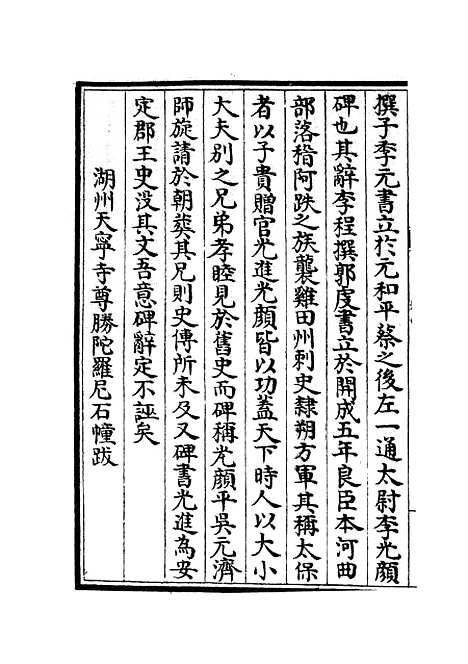 撰子季元書立於元和平蔡之後左一通太尉李光顔
碑也其辭李程撰郭虔書立於開成五年良臣本河曲
部落稽阿跌之族襲雞田州刺史隸朔方軍其稱太保
者以子貴贈官光進光顔皆以功蓋天下時人以大小
大夫别之兄弟孝睦見於舊史而碑稱光顔平吳元濟
師旋請於朝葬其兄則史傳所未及又碑書光進為安
定郡王史没其文吾意碑辭定不誣矣
湖州天寧寺尊勝陀羅尼石幢跋